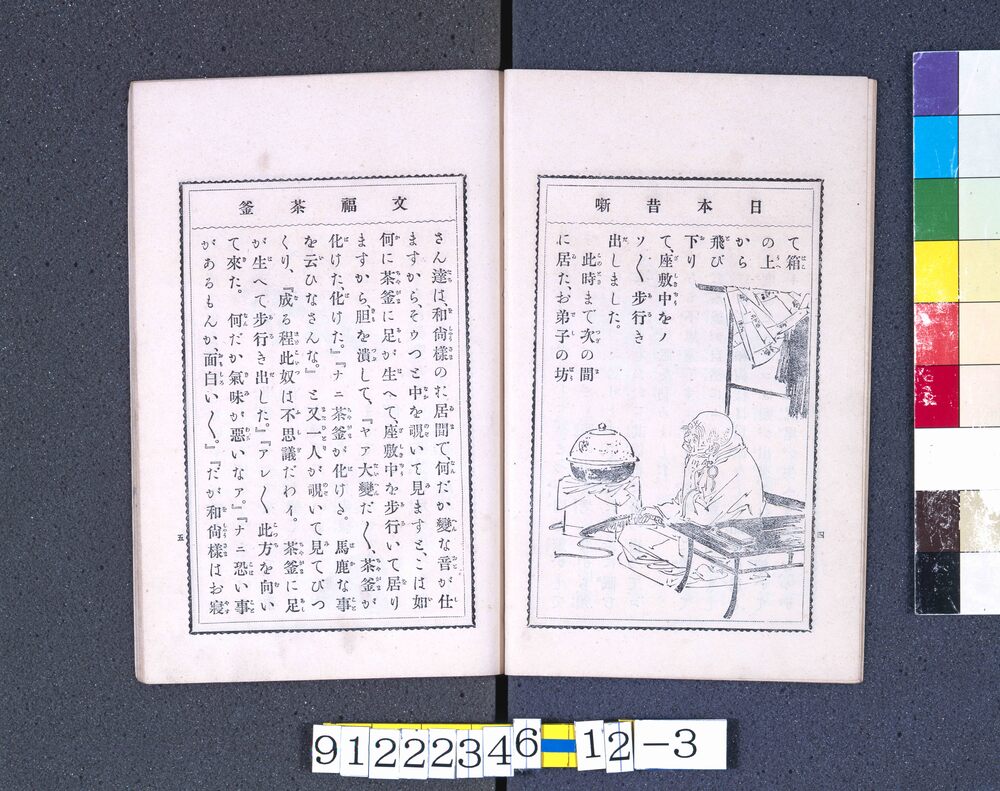 日本昔噺
て箱
の上
から
飛び
下り
て、座敷中をノ
ソ〳〵歩行き
出しました。
此時まで次の間
に居た、お弟子の坊
四
文福茶釜
さん達は、和尙樣のお居間で、何だか變な音が仕
ますから、そゥつと中を覗いて見ますと、こは如
何に茶釜に足が生へて、座敷中を步行いて居り
ますから、胆を潰して、『ヤア大變だ〳〵、茶釜が
化けた化けた。』『ナニ茶釜が化けた。馬鹿な事
を云ひなさんな。』と又一人が覗いて見てびつ
くり、『成る程此奴は不思議だわィ。茶釜に足
が生へて步行き出した。』『アレ〳〵此方を向い
て來た。何だか氣味が惡いなァ。』『ナニ恐い事
があるもんか、面白い〳〵。』『だが和尙樣はお寢
五
91222346=12-3